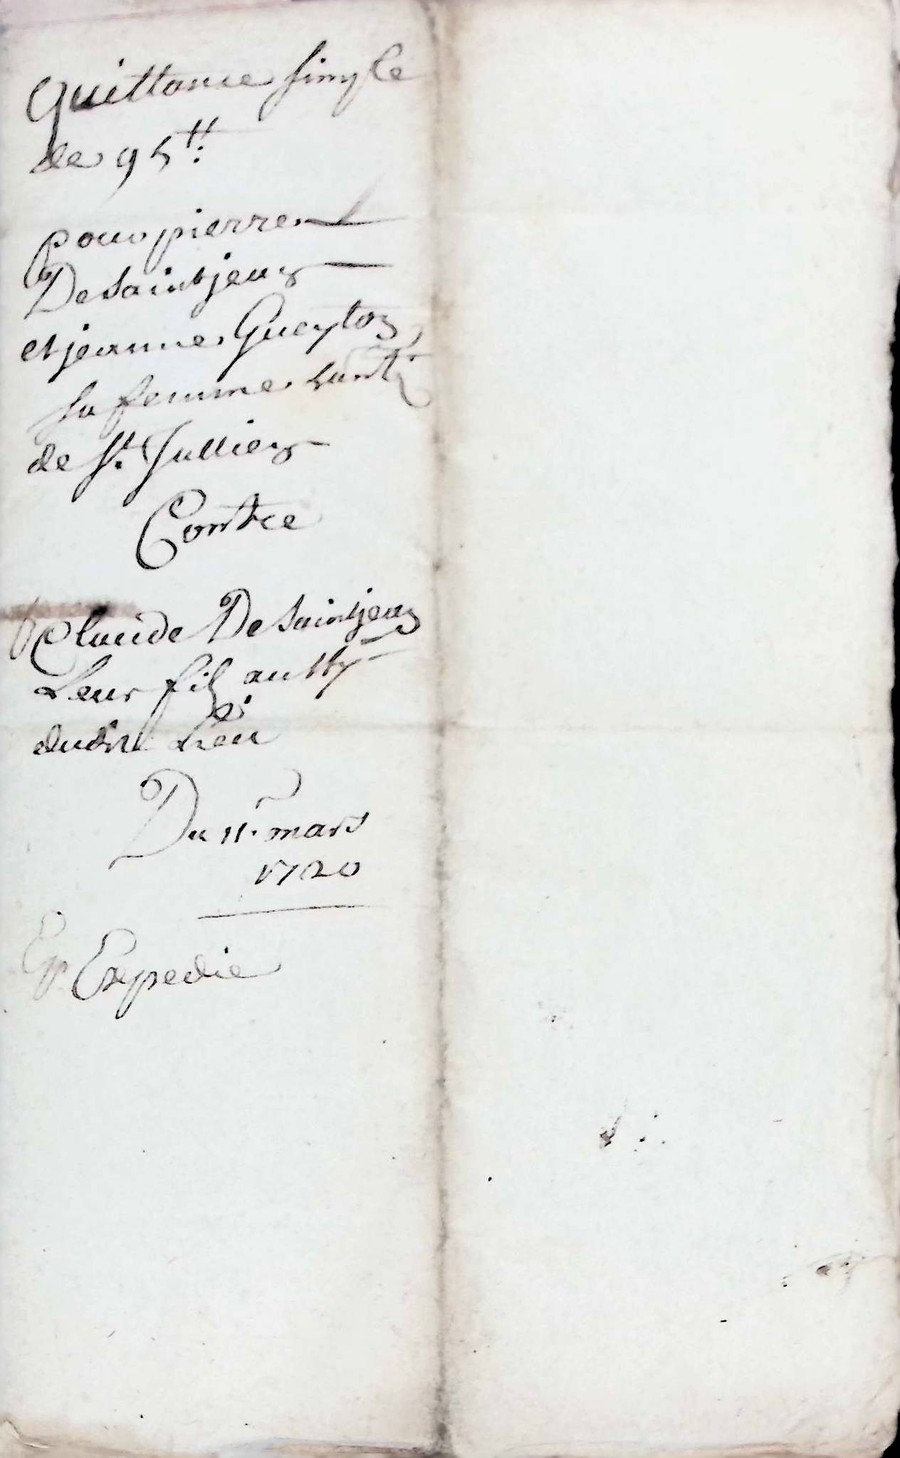 Quittance simple
de 95ᵗᵗ:
pour pierre
Desaintjean
et jeanne Gueyton
sa femme
de Sᵗ. Jullien
Contre
Claude Desaintjean
Leur fils aussy
dudit Lieu
Du 11.ᵉ mars
1720
Expedie